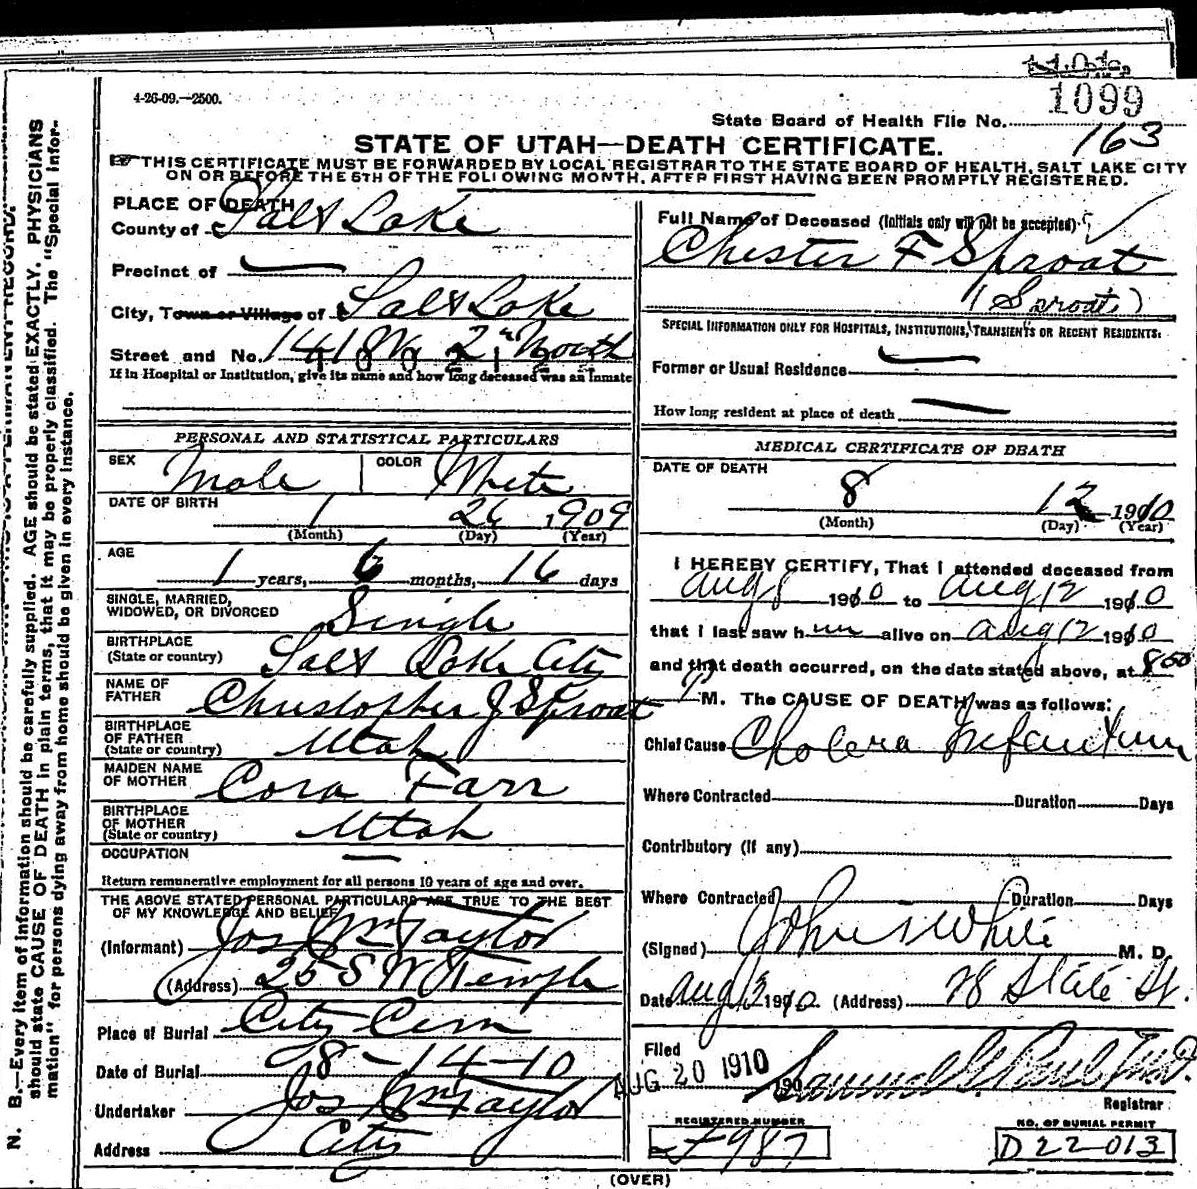 1101
4-26-09.—2500.
1099
State Board of Health File No. 163
STATE OF UTAH—DEATH CERTIFICATE.
☞ THIS CERTIFICATE MUST BE FORWARDED BY LOCAL REGISTRAR TO THE STATE BOARD OF HEALTH, SALT LAKE CITY
ON OR BEFORE THE 5TH OF THE FOLLOWING MONTH, AFTER FIRST HAVING BEEN PROMPTLY REGISTERED.
PLACE OF DEATH
County of Salt Lake
Precinct of —
City, Town or Village of Salt Lake
Street and No. 1418 W 2" North
If in Hospital or Institution, give its name and how long deceased was an Inmate
PERSONAL AND STATISTICAL PARTICULARS
SEX Male COLOR White
DATE OF BIRTH 1 26 1909
(Month) (Day) (Year)
AGE 1 years, 6 months, 16 days
SINGLE, MARRIED,
WIDOWED, OR DIVORCED Single
BIRTHPLACE
(State or country) Salt Lake City
NAME OF
FATHER Christopher J Sproat
BIRTHPLACE
OF FATHER
(State or country) Utah
MAIDEN NAME
OF MOTHER Cora Farr
BIRTHPLACE
OF MOTHER
(State or country) Utah
OCCUPATION —
Return remunerative employment for all persons 10 years of age and over.
THE ABOVE STATED PERSONAL PARTICULARS ARE TRUE TO THE BEST
OF MY KNOWLEDGE AND BELIEF
(Informant) Jos Wm Taylor
(Address) 25 S W Temple
Place of Burial City Cem
Date of Burial 8-14-10
Undertaker Jos Wm Taylor
Address City
Full Name of Deceased (Initials only will not be accepted)
Chester F Sproat
(Sproat)
SPECIAL INFORMATION ONLY FOR HOSPITALS, INSTITUTIONS, TRANSIENTS OR RECENT RESIDENTS.
Former or Usual Residence —
How long resident at place of death —
MEDICAL CERTIFICATE OF DEATH
DATE OF DEATH
8 12 1910
(Month) (Day) (Year)
I HEREBY CERTIFY, That I attended deceased from
Aug 8 1910 to Aug 12 1910
that I last saw him alive on Aug 12 1910
and that death occurred, on the date stated above, at 8 00
M. The CAUSE OF DEATH was as follows:
Chief Cause Cholera Infantum
Where Contracted Duration Days
Contributory (If any)
Where Contracted Duration Days
(Signed) John S White M. D.
Date Aug 13 1910 (Address) 78 State St.
Filed
AUG 20 1910 190 Samuel G. Paul M.D.
Registrar
REGISTERED NUMBER
F987
NO. OF BURIAL PERMIT
D22-013
(OVER)
N. B.—Every item of information should be carefully supplied. AGE should be stated EXACTLY. PHYSICIANS
should state CAUSE OF DEATH in plain terms, that it may be properly classified. The "Special Infor-
mation" for persons dying away from home should be given in every instance.